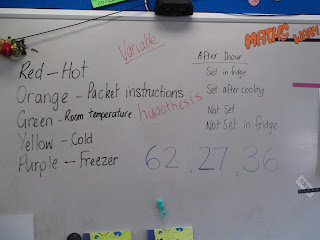 MATHS WORKI
Variable
After 1hour
Red - Hot
Set in fridge
Orange - Packet instructions
Set after cooling
Green - Room temperature
hypothesis
Not Set
Yellow - Cold
Not Set in fridge
Purple - Freezer
62, 27, 36